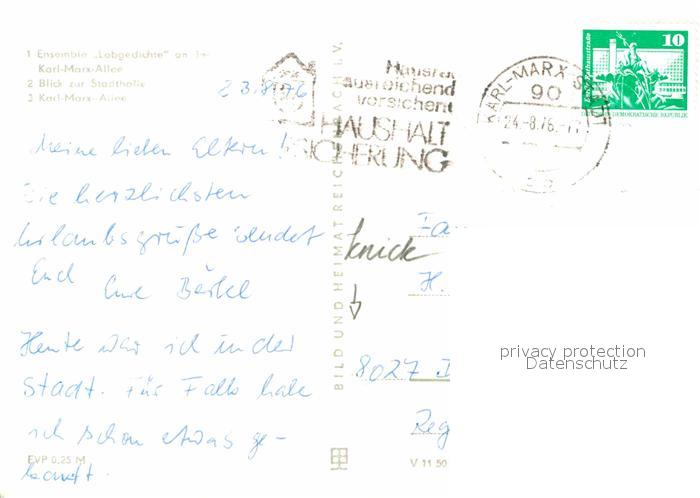 1 Ensemble „Lobgedichte" an der
Karl-Marx-Allee
2 Blick zur Stadthalle
3 Karl-Marx-Allee
23.8.76
Hausrat
ausreichend
versichern
HAUSHALT
SICHERUNG
KARL-MARX-STADT
90
24.-8.76.-11
10
DEUTSCHE DEMOKRATISCHE REPUBLIK
Meine lieben Eltern!
Die herzlichsten
Urlaubsgrüße sendet
Euch Eure Bärbel
Heute war ich in der
Stadt. Für Falk habe
ich schon etwas ge-
kauft.
BILD UND HEIMAT REICHENBACH I. V.
knick
Fa
H.
8027 D
Reg
EVP 0,25 M
V 11 50
privacy protection
Datenschutz